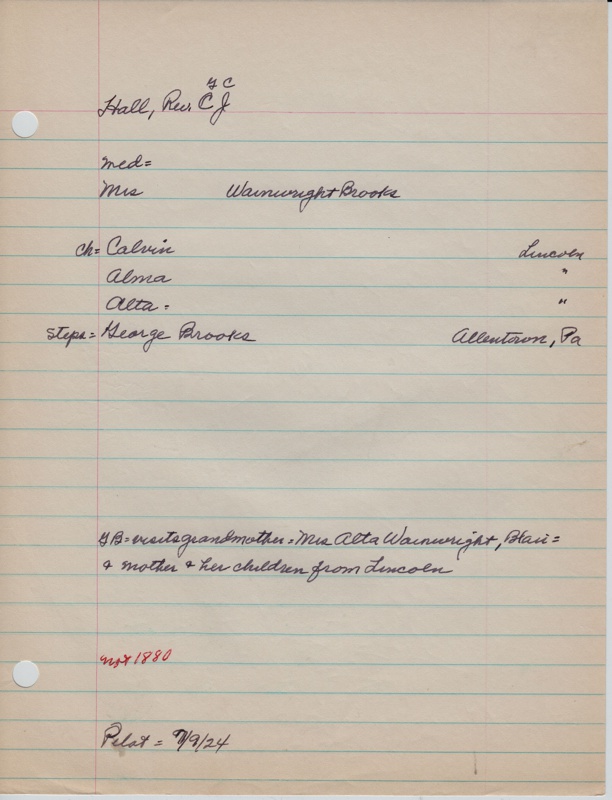 G C
Hall, Rev. C J
med=
Mrs Wainwright Brooks
ch= Calvin Lincoln
Alma "
Alta= "
steps= George Brooks Allentown, Pa
GB=visits grandmother=Mrs Alta Wainwright, Blair=
& mother & her children from Lincoln
not 1880
Pilot = 7/9/24